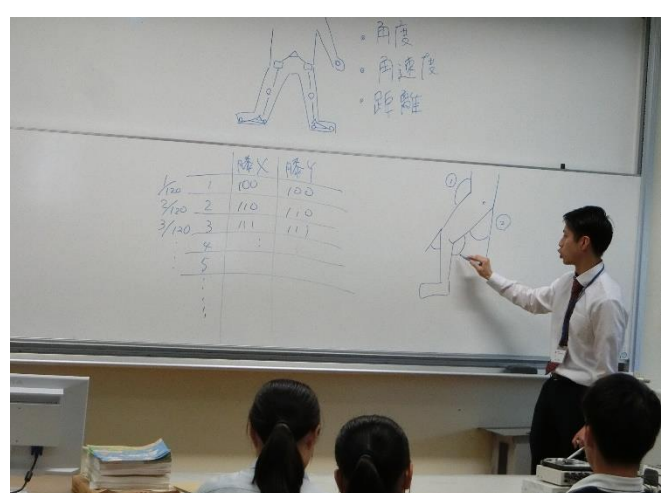 ・角度
・角速度
・距離
膝X 膝Y
1/120 1 100 100
2/120 2 110 110
3/120 3 111 111
4
5
①
②